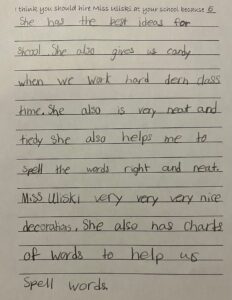 I think you should hire Miss Uliski at your school because
She has the best ideas for
shcool She also gives us candy
when we work hard dern class
time. She also is very neat and
tiedy she also helps me to
spell the words right and neat.
Miss Uliski very very very nice
decorations. She also has charts
of words to help us
spell words.